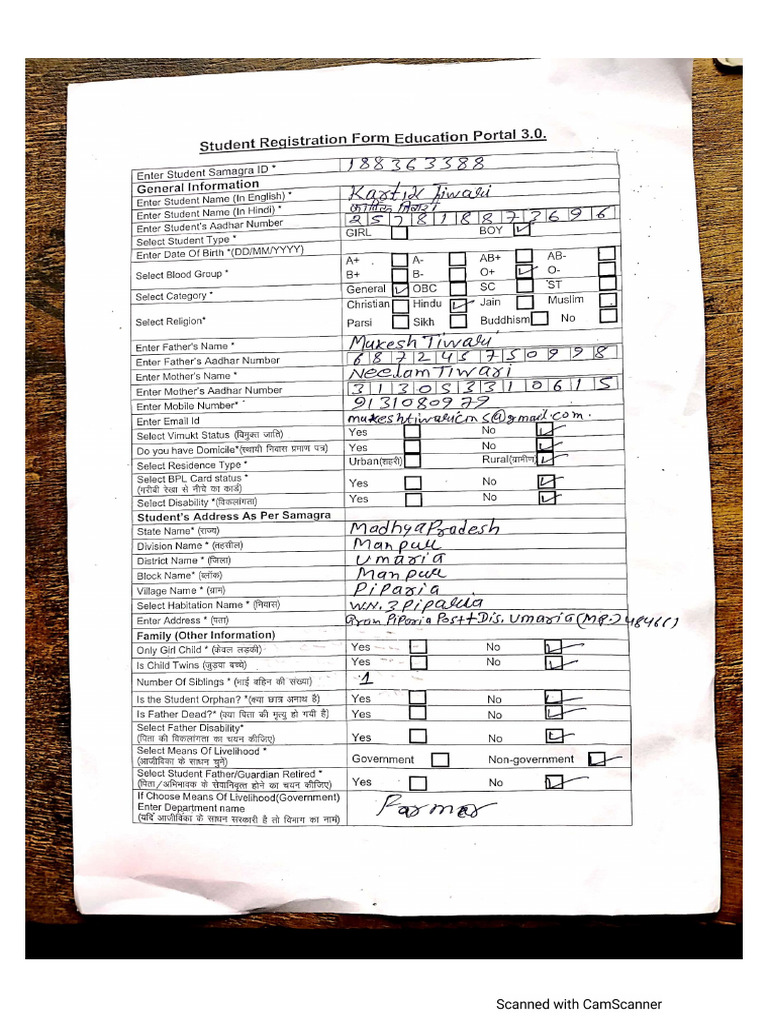 Student Registration Form Education Portal 3.0.
Enter Student Samagra ID * 188363388
General Information
Enter Student Name (In English) * Kartik Tiwari
Enter Student Name (In Hindi) * कार्तिक तिवारी
Enter Student's Aadhar Number 257818873696
Select Student Type * GIRL BOY ✓
Enter Date Of Birth *(DD/MM/YYYY)
Select Blood Group * A+ A- AB+ AB-
B+ B- O+ ✓ O-
Select Category * General ✓ OBC SC ST
Select Religion* Christian Hindu ✓ Jain Muslim
Parsi Sikh Buddhism No
Enter Father's Name * Mukesh Tiwari
Enter Father's Aadhar Number 687245750998
Enter Mother's Name * Neelam Tiwari
Enter Mother's Aadhar Number 313053310615
Enter Mobile Number* 9131080979
Enter Email Id mukeshtiwaricms@gmail.com.
Select Vimukt Status (विमुक्त जाति) Yes No ✓
Do you have Domicile*(स्थायी निवास प्रमाण पत्र) Yes No ✓
Select Residence Type * Urban(शहरी) Rural(ग्रामीण) ✓
Select BPL Card status * Yes No ✓
(गरीबी रेखा से नीचे का कार्ड)
Select Disability *(विकलांगता) Yes No ✓
Student's Address As Per Samagra
State Name* (राज्य) Madhya Pradesh
Division Name * (तहसील) Manpur
District Name * (जिला) Umaria
Block Name* (ब्लॉक) Manpur
Village Name * (ग्राम) Piparia
Select Habitation Name * (निवास) W.N. 3 Piparia
Enter Address * (पता) Gram Piparia Post+Dis. Umaria (MP.)
Family (Other Information)
Only Girl Child * (केवल लड़की) Yes No ✓
Is Child Twins (जुड़वा बच्चे) Yes No ✓
Number Of Siblings * (भाई बहिन की संख्या) 1
Is the Student Orphan? *(क्या छात्र अनाथ है) Yes No ✓
Is Father Dead?* (क्या पिता की मृत्यु हो गयी है) Yes No ✓
Select Father Disability* Yes No ✓
(पिता की विकलांगता का चयन कीजिए)
Select Means Of Livelihood * Government Non-government ✓
(आजीविका के साधन चुने)
Select Student Father/Guardian Retired * Yes No ✓
(पिता/अभिभावक के सेवानिवृत्त होने का चयन कीजिए)
If Choose Means Of Livelihood(Government)
Enter Department name Farmer
(यदि आजीविका के साधन सरकारी है तो विभाग का नाम)
Scanned with CamScanner